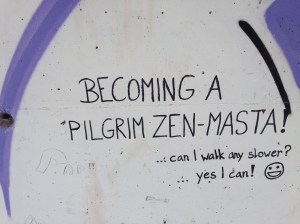 BECOMING A
PILGRIM ZEN-MASTA!
..: can I walk any slower?
... yes I can!